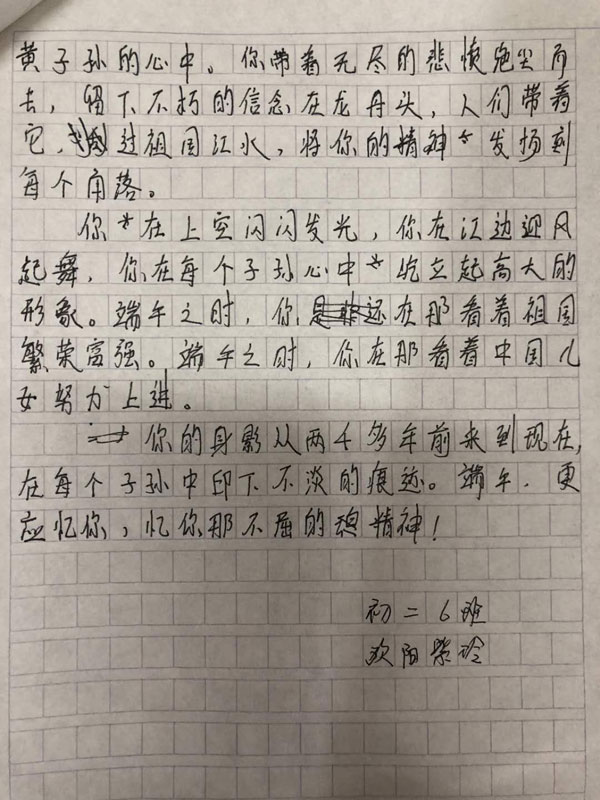 黄子孙的心中。你带着无尽的悲愤绝尘而
去，留下不朽的信念在龙舟头，人们带着
它，过祖国江水，将你的精神发扬到
每个角落。
你在上空闪闪发光，你在江边迎风
起舞，你在每个子孙心中屹立起高大的
形象。端午之时，你还在那看着祖国
繁荣富强。端午之时，你在那看着中国儿
女努力上进。
你的身影从两千多年前来到现在，
在每个子孙中印下不淡的痕迹。端午，更
应忆你，忆你那不屈的精神！
初二6班
欧阳紫玲